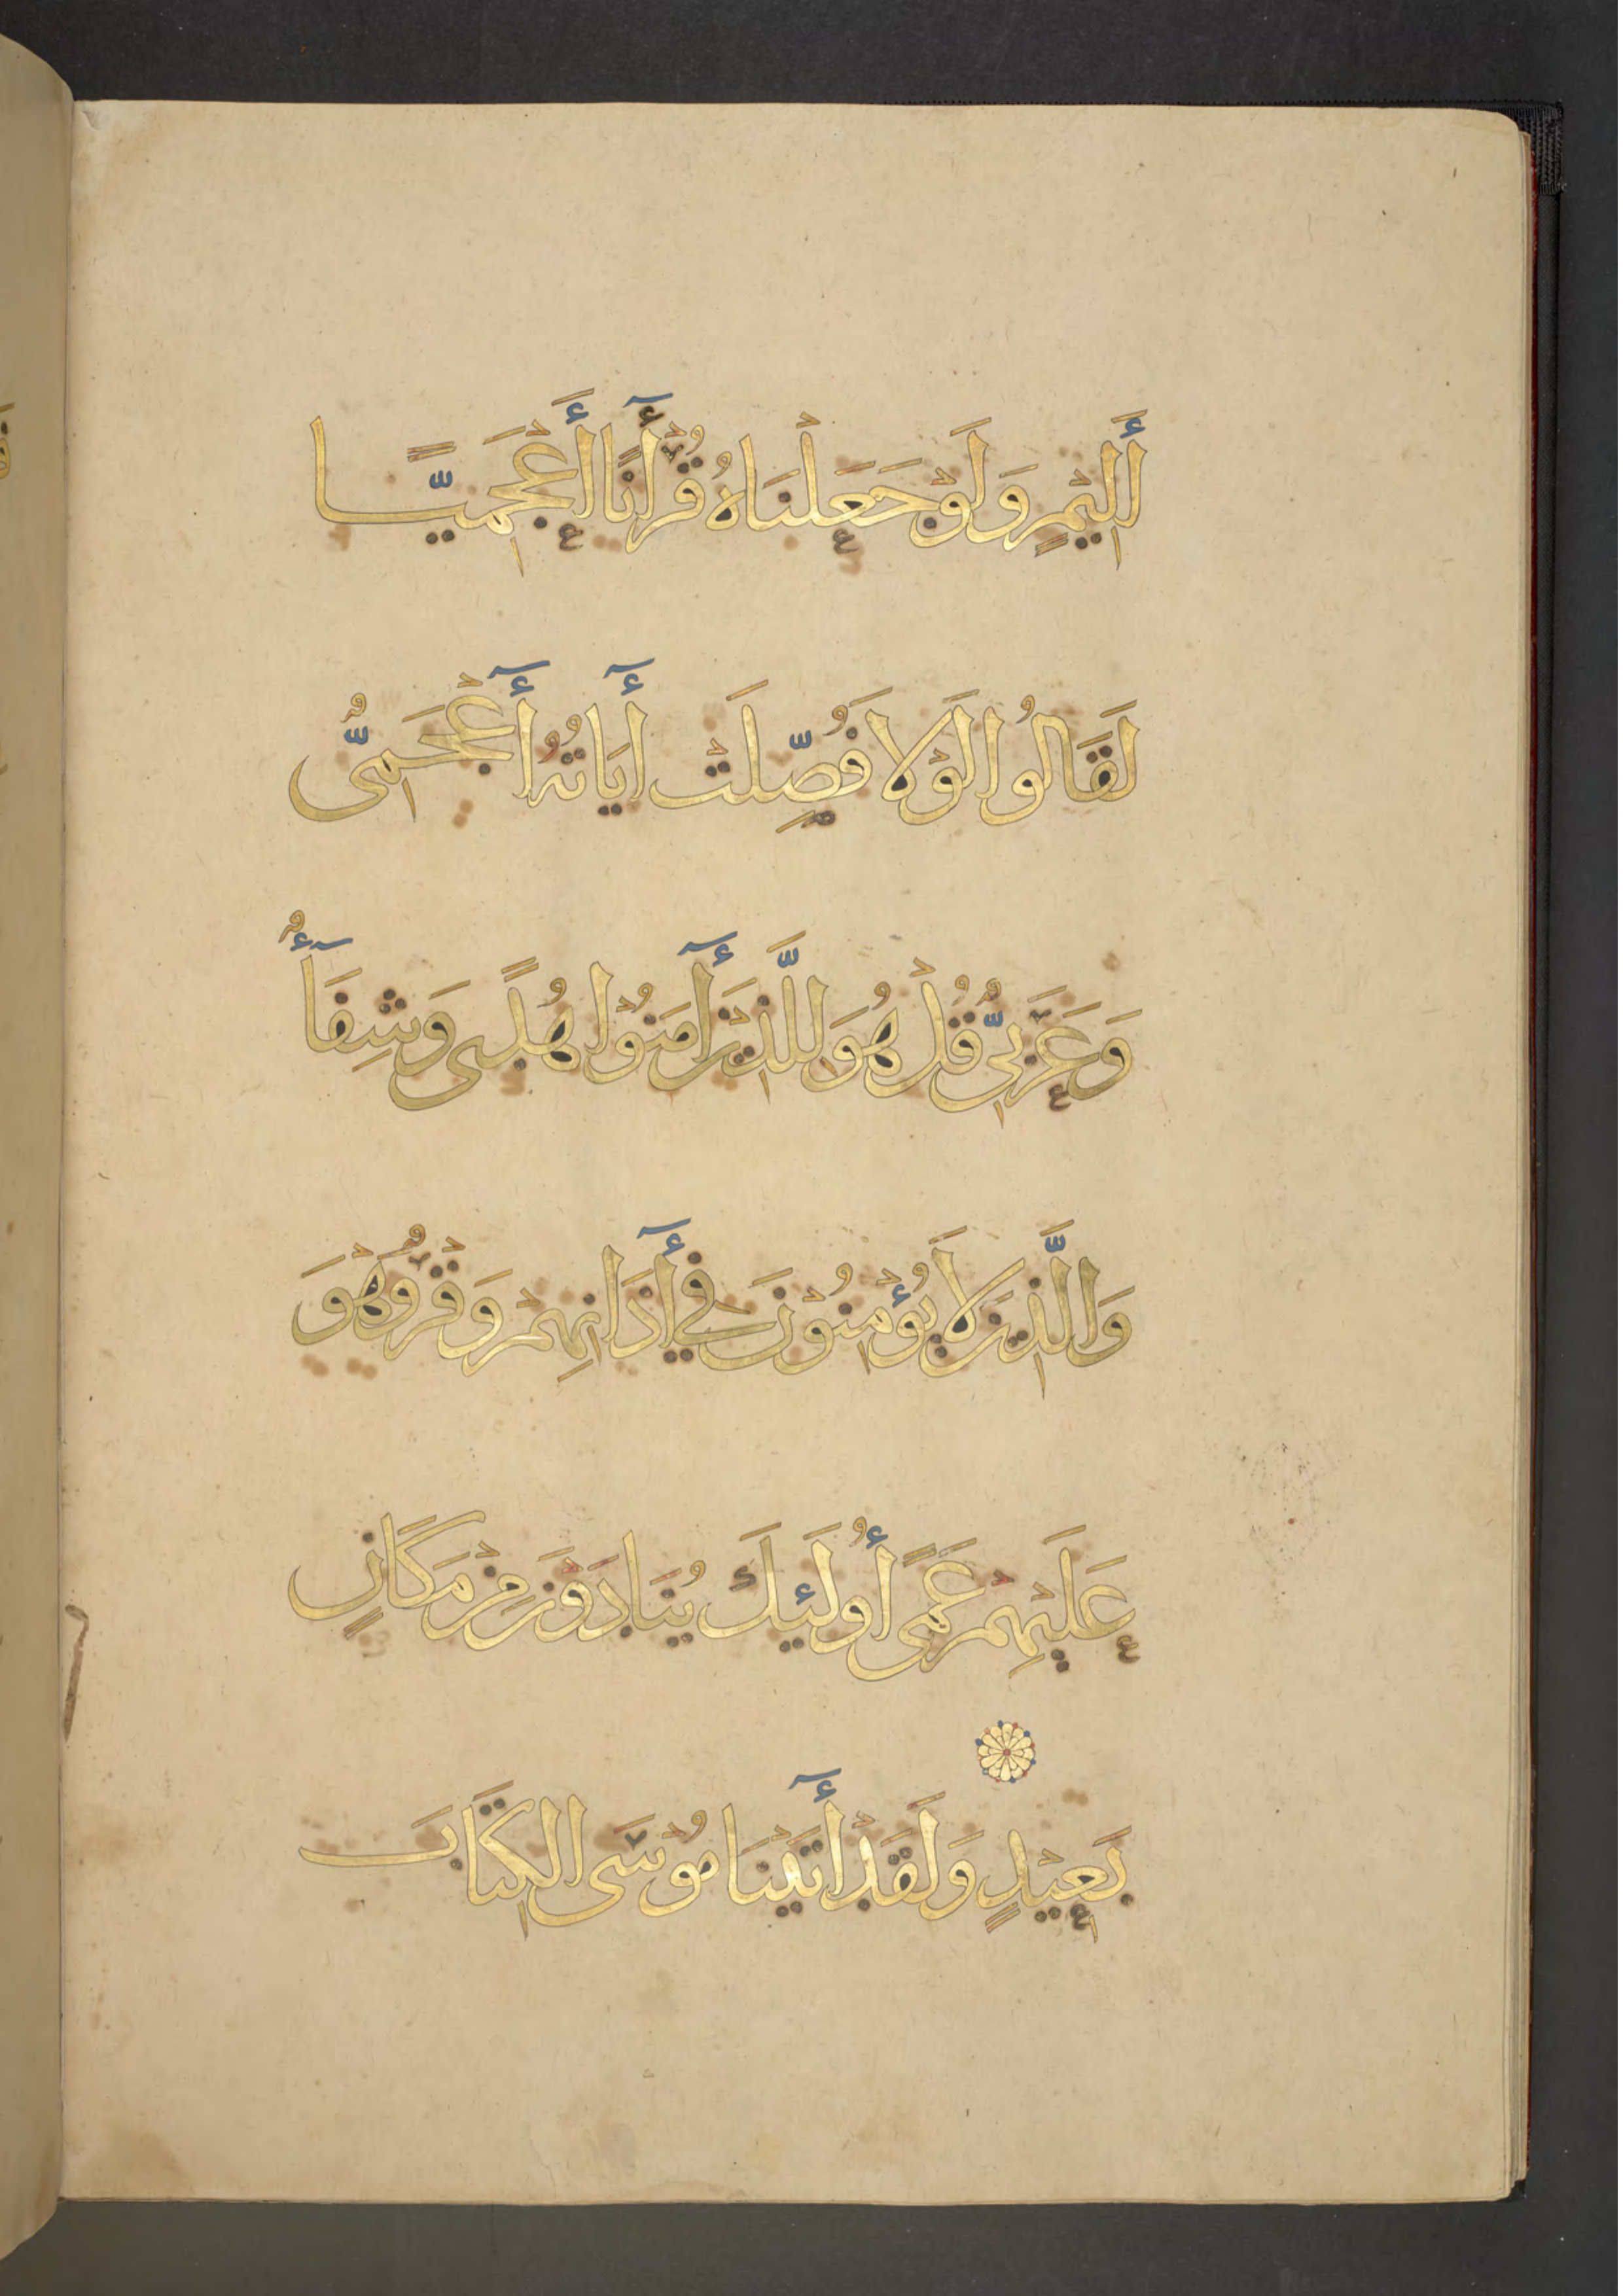 أَلِيْمٍ وَلَوْ جَعَلْنَاهُ قُرْأٓنًا أَعْجَمِيًّا
لَقَالُوا لَوْلَا فُصِّلَتْ أٓيَاتُهُ أٓعْجَمِىٌّ
وَعَرَبِىٌّ قُلْ هُوَ لِلَّذِيْنَ أٓمَنُوْا هُدًى وَشِفَآأٌ
وَالَّذِيْنَ لَا يُؤْمِنُوْنَ فِي أٓذَانِهِمْ وَقْرٌ وَهْوَ
عَلَيْهِمْ عَمًى أُولَئِكَ يُنَادَوْنَ مِنْ مَكَانٍ
بَعِيْدٍ وَلَقَدْ أٓتَيْنَا مُوْسَى الكِتَابَ